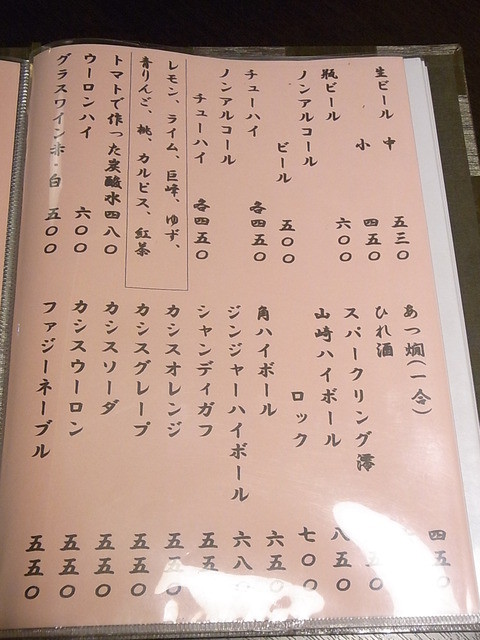 生ビール 中 五三〇
小 四五〇
瓶ビール 六〇〇
ノンアルコール
ビール 五〇〇
チューハイ 各四五〇
ノンアルコール
チューハイ 各四五〇
レモン、ライム、巨峰、ゆず、
青りんご、桃、カルピス、紅茶
トマトで作った炭酸水四八〇
ウーロンハイ 六〇〇
グラスワイン赤・白 五〇〇
あつ燗(一合) 四五〇
ひれ酒
スパークリング澪
山崎ハイボール 八五〇
ロック 七〇〇
角ハイボール 六五〇
ジンジャーハイボール 六八〇
シャンディガフ 五五〇
カシスオレンジ 五五〇
カシスグレープ 五五〇
カシスソーダ 五五〇
カシスウーロン 五五〇
ファジーネーブル 五五〇